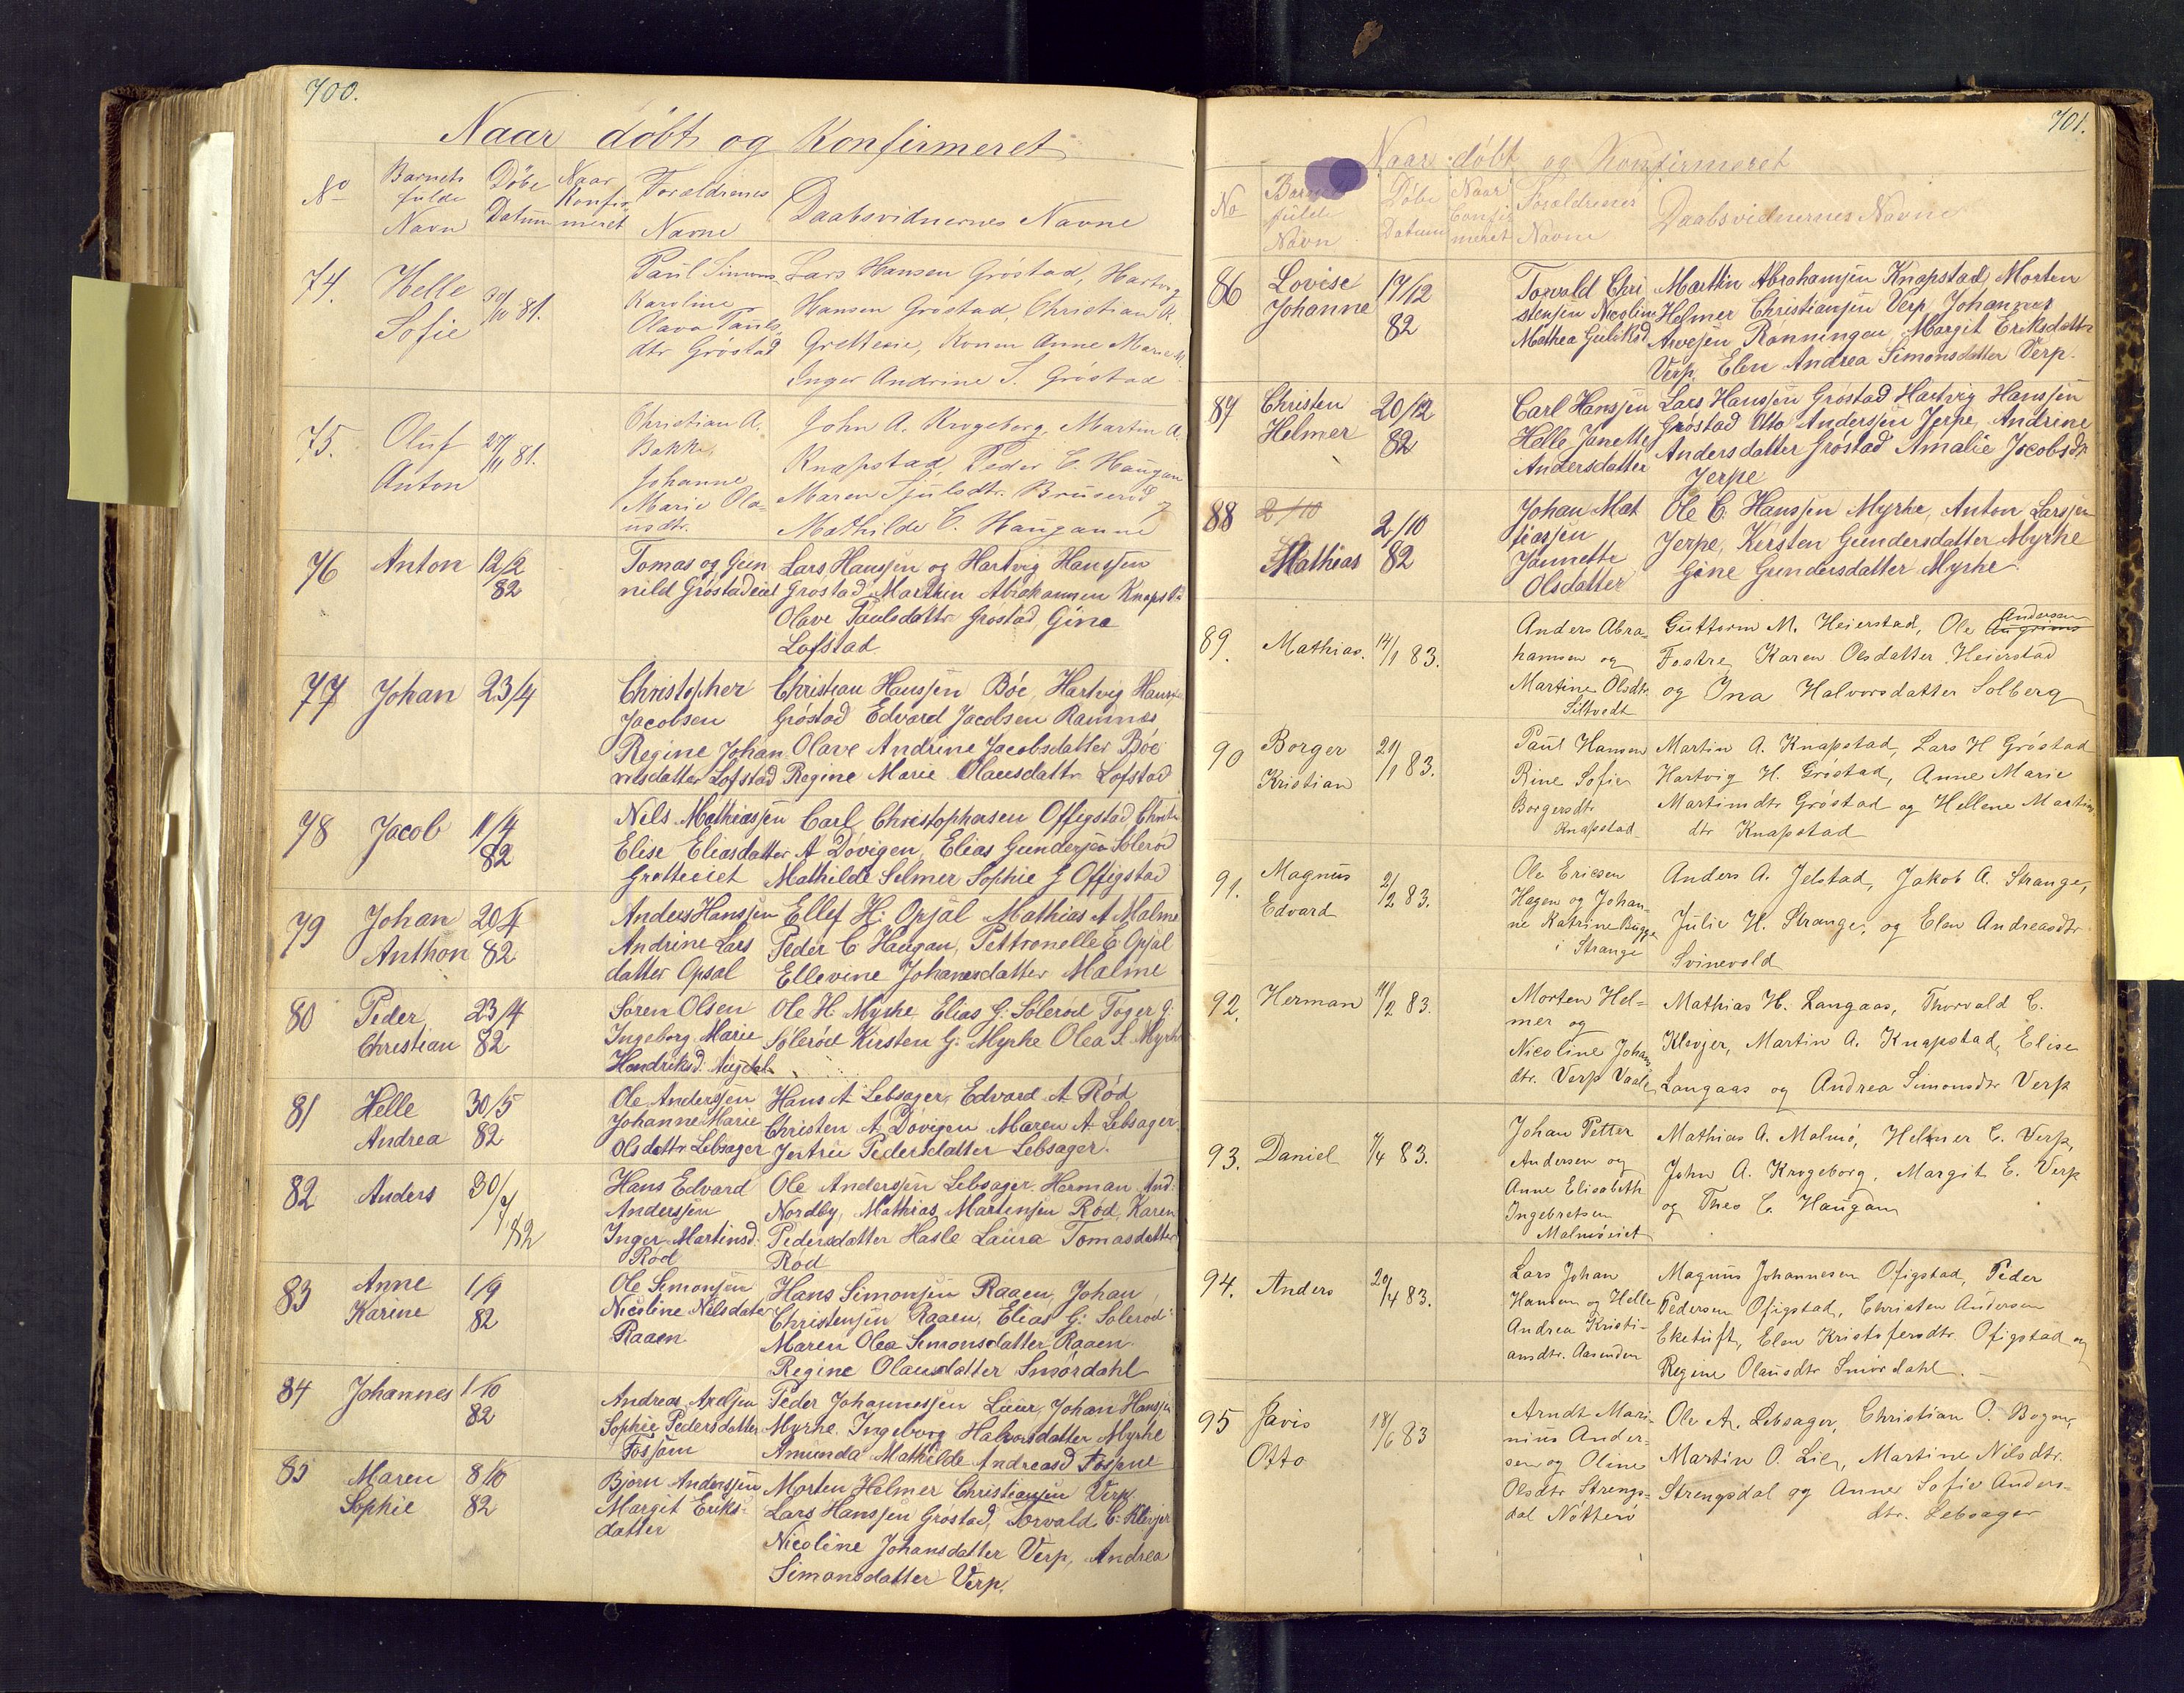 700.
Naar döbt og Konfirmeret
No Barnets fulde Navn Döbe Datum Naar Konfirmeret Forældrenes Navne Daabsvidnernes Navne
74. Helle Sofie 30/10 81. Paul Simons Karoline Olava Pauls dtr Gröstad
Lars Hansen Gröstad, Hartvig
Hansen Gröstad, Christian K.
Grettene, Konen Anne Marie M.
Inger Andrine S. Gröstad
75. Oluf Anton 27/11 81. Christian A. Bakke, Johanne Marie Olausdtr.
John A. Krogeborg, Martin A.
Knapstad, Peder C. Haugan
Maren Hjulsdtr. Bruseröd
Mathilde C. Hauganne
76 Anton 12/2 82 Tomas og Gunnild Gröstadeiet
Lars Hansjen og Hartvig Hansjen
Grostad Marthin Abrahamsen Knapst
Olave Paulsdattr Gröstad, Gina
Lofstad
77 Johan 23/4 Christopher Jacobsen Regine Johannesdatter Lofstad
Christian Hansjen Böe, Hartvig Hansjen
Gröstad Edvard Jacobsen Ramnes
Olave Andrine Jacobsdatter Böe
Regine Marie Olausdattr Lofstad
78 Jacob 11/4 82 Nils Mathiasjen Elise Eliasdatter Gretteeiet
Carl Christophersen Offigstad, Christen
A Dövigen, Elias Gundersjen Solerod
Mathilde Selmer Sophie G Offigstad
79 Johan Anthon 20/4 82 Anders Hansjen Andrine Larsdatter Opsal
Ellef H. Opsal Mathias A Malme
Peder C Haugan, Pettronelle E Opsal
Ellevine Johanesdatter Malme
80 Peder Christian 23/4 82 Soren Olsen Ingeborg Marie Hendriksd.
Ole H. Myrhe Elias G. Solerod Toger G.
Solerod Kirsten G. Myrhe Olea S. Myrhe
81 Helle Andrea 30/5 82 Ole Andersjen Johanne Marie Olsdattr Lebsager
Hans A Lebsager, Edvard A Röd
Christen A Dövigen Maren A Lebsager
Jertru Pedersdatter Lebsager.
82 Anders 30/7/82 Hans Edvard Andersjen Inger Martinsd. Röd
Ole Andersjen Lebsager. Herman And.
Nordby, Mathias Martinsjen Röd, Karen
Pedersdatter Hasle Laura Tomasdatter
Röd
83 Anne Karine 1/9 82 Ole Simonsjen Nicoline Nilsdater Raaen
Hans Simonsjen Raaen, Johan
Christensjen Raaen, Elias G. Solerod
Maren Olea Simonsdatter Raaen.
Regine Olausdatter Smördahl
84 Johannes 1/10 82 Andreas Axelsjen Sophie Pedersdatter Fossjom
Peder Johannesjen Lieur, Johan Hansjen
Myrhe. Ingeborg Halvorsdatter Myrhe
Amunda Mathilde Andreasd
85 Maren Sophie 8/10 82 Bjorn Andersjen Margit Eriksdatter
Morten Helmer Christiansjen Verp
Lars Hansjen Grostad, Torvald C. Klevjer
Nicoline Johansdatter Verp, Andrea
Simonsdatter Verp.
701.
Naar döbt og Konfirmeret
No Barnets fulde Navn Döbe Datum Naar Confirmeret Forældrenes Navne Daabsvidnernes Navne
86 Lovise Johanne 17/12 82 Torvald Christensjen Nicoline Mathea Guliksd
Marthin Abrahamsjen Knapstad, Morten
Helmer Christiansjen Verp, Johannes
Arvesjen Rönningen, Margit Eriksdattr
Verp, Elen Andrea Simonsdatter Verp.
87 Christen Helmer 20/12 82 Carl Hansjen Helle Janette Andersdatter
Lars Hansjen Gröstad Hartvig Hansjen
Gröstad Otto Andersjen Jerpe, Andrine
Andersdatter Gröstad Amalie Jocobsdr
Jerpe
88 2/10 Mathias 2/10 82 Johan Matiasjen Jannette Olsdatter
Ole C. Hansjen Myrhe, Anton Larsjen
Jerpe, Kersten Gundersdatter Myrhe
Gine Gundersdatter Myrhe.
89. Mathias. 14/1 83. Anders Abrahamsen og Martine Olsdtr. Siltvedt
Guttorm M. Heierstad, Ole Andersen
Fostre, Karen Olsdatter Heierstad
og Ina Halvorsdatter Solberg
90 Borger Kristian 21/1 83. Paul Hansen Rine Sofie Borgersdtr. Knapstad
Martin A. Knapstad, Lars H Gröstad
Hartvig H. Gröstad, Anne Marie
Martinsdtr Gröstad og Hellene Martins
dtr Knapstad
91. Magnus Edvard 2/2 83. Ole Ericsen Hagen og Johanne Katrine Bugge i Strange
Anders A. Jelstad, Jakob A. Strange,
Julie H. Strange, og Elen Andreasdtr
Svinevold
92. Herman 11/2 83. Morten Helmer og Nicoline Johansdtr. Verp Vaale
Mathias H. Langaas, Thorvald C.
Klevjer, Martin A. Knapstad, Elise
Langaas og Andrea Simonsdtr Verp
93. Daniel 1/4 83. Johan Petter Andersen og Anne Elisabeth Ingebretsen Malmöeiet
Mathias A. Malmö, Helmer C. Verp,
John A. Krogeborg, Margit E. Verp
og Theo C. Haugan
94. Anders 29/4 83. Lars Johan Hansen og Helle Andrea Kristiansdtr. Aasenden
Magnus Johannesen Ofigstad, Peder
Pedersen Ofigstad, Christen Andersen
Eketuft, Elen Kristofersdtr. Ofigstad og
Regine Olausdtr Smördahl.
95 Javis Otto 18/6 83 Arndt Marinius Andersen og Oline Olsdtr Strengsdal Nötterö
Ole A. Lebsager, Christian O. Bogen,
Martin O. Lie, Martine Nilsdtr.
Strengsdal og Anne Sofie Anders-
dtr. Lebsager